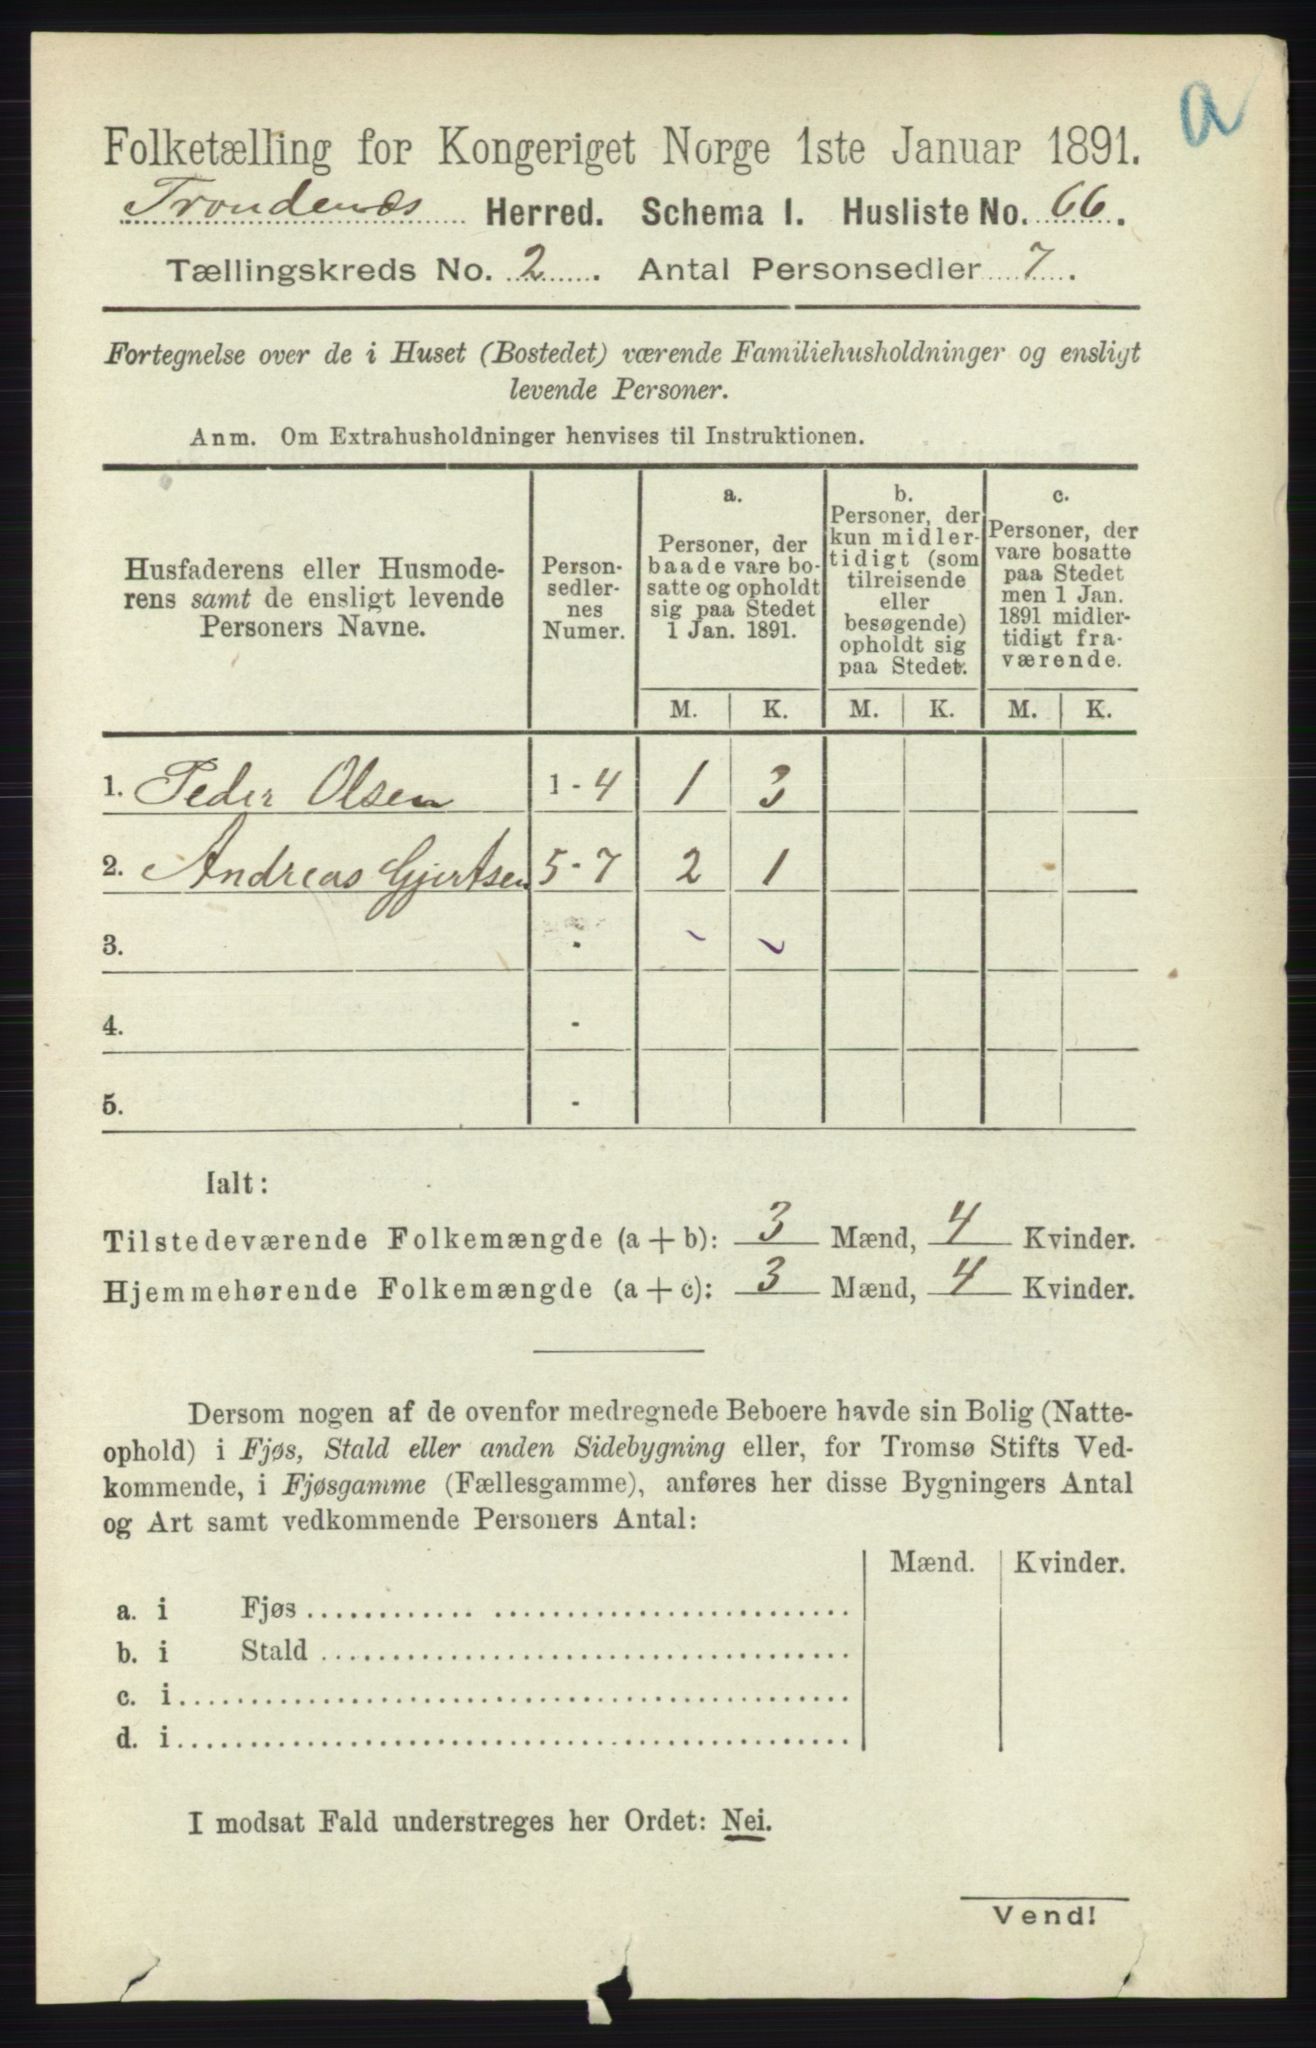 a
Folketælling for Kongeriget Norge 1ste Januar 1891.
Trondenæs Herred. Schema I. Husliste No. 66.
Tællingskreds No. 2. Antal Personsedler 7.
Fortegnelse over de i Huset (Bostedet) værende Familiehusholdninger og ensligt
levende Personer.
Anm. Om Extrahusholdninger henvises til Instruktionen.
Husfaderens eller Husmode-
rens samt de ensligt levende
Personers Navne.
Person-
sedler-
nes
Numer.
a.
Personer, der
baade vare bo-
satte og opholdt
sig paa Stedet
1 Jan. 1891.
b.
Personer, der
kun midler-
tidigt (som
tilreisende
eller
besøgende)
opholdt sig
paa Stedet.
c.
Personer, der
vare bosatte
paa Stedet
men 1 Jan.
1891 midler-
tidigt fra-
værende.
M. K. M. K. M. K.
1. Peder Olsen 1-4 1 3
2. Andreas Gjertsen 5-7 2 1
3. -
4. -
5. -
Ialt:
Tilstedeværende Folkemængde (a+b): 3 Mænd, 4 Kvinder.
Hjemmehørende Folkemængde (a+c): 3 Mænd, 4 Kvinder.
Dersom nogen af de ovenfor medregnede Beboere havde sin Bolig (Natte-
ophold) i Fjøs, Stald eller anden Sidebygning eller, for Tromsø Stifts Ved-
kommende, i Fjøsgamme (Fællesgamme), anføres her disse Bygningers Antal
og Art samt vedkommende Personers Antal:
Mænd. Kvinder.
a. i Fjøs
b. i Stald
c. i
d. i
I modsat Fald understreges her Ordet: Nei.
Vend!